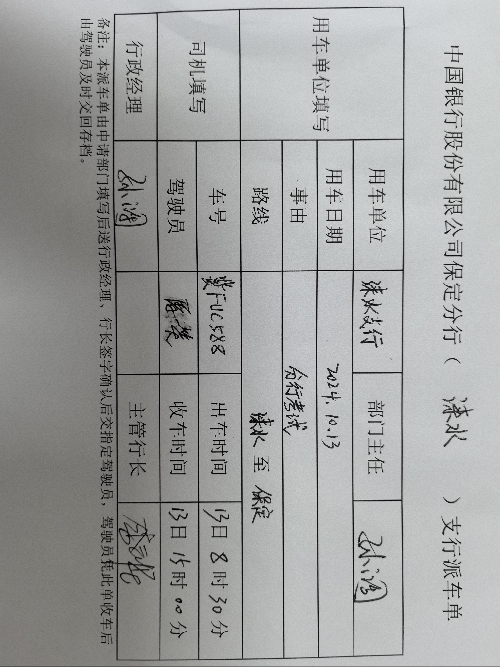 中国银行股份有限公司保定分行（ 涞水 ）支行派车单
用车单位填写 用车单位 涞水支行 部门主任
用车日期 2024.10.13
事由 分行考试
路线 涞水 至 保定
司机填写 车号 冀FUC588 出车时间 13日 8时 30分
驾驶员 收车时间 13日 15时 00分
行政经理 主管行长
备注：本派车单由申请部门填写后送行政经理、行长签字确认后交指定驾驶员，驾驶员凭此单收车后
由驾驶员及时交回存档。